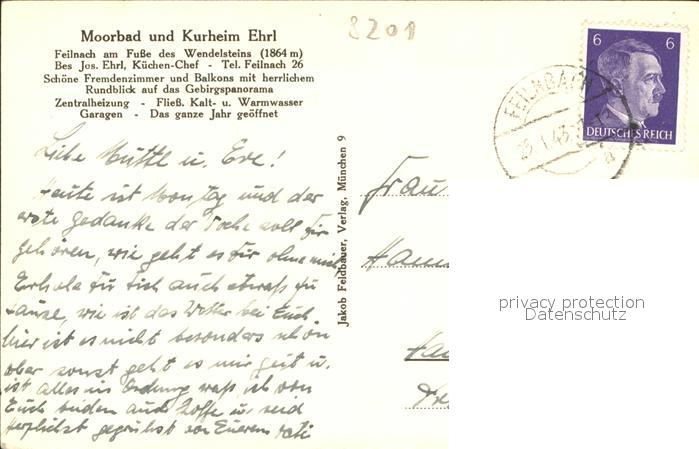 8201
Moorbad und Kurheim Ehrl
Feilnach am Fuße des Wendelsteins (1864 m)
Bes Jos. Ehrl, Küchen-Chef - Tel. Feilnach 26
Schöne Fremdenzimmer und Balkons mit herrlichem
Rundblick auf das Gebirgspanorama
Zentralheizung - Fließ. Kalt- u. Warmwasser
Garagen - Das ganze Jahr geöffnet
6 6
DEUTSCHES REICH
FEILNBACH
Liebe Muttl u. Eve!
Heute ist Montag und der
erste Gedanke der Woche soll Dir
gehören, wie geht es Dir ohne mich
Erhole Du Dich auch etwas zu
Hause, wie ist das Wetter bei Euch
hier ist es nicht besonders schön
aber sonst geht es mir gut u.
ist alles in Ordnung was ich von
Euch beiden auch hoffe u. seid
herzlichst gegrüßt von Eurem Vati
Jakob Feldbauer, Verlag, München 9
Frau
privacy protection
Datenschutz